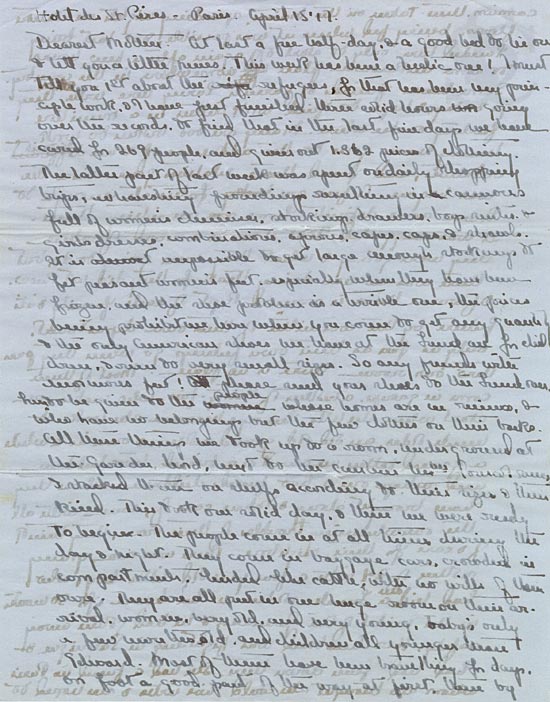 Hotel des Sts. Pères - Paris. April 15 '17.
Dearest Mother - At last a free half-day, & a good bed to lie on
& tell you a little news. This week has been a hectic one! I must
tell you 1st about the refugees, for that has been my prin-
ciple work, & I have just finished three solid hours going
over the records. I find that in the last five days we have
cared for 269 people, and given out 1362 pieces of clothing.
The latter part of last week was spent on daily shopping
trips, ... something in
full of women's chemises, stockings, drawers, boys suits, &
girls dresses, combinations, aprons, capes, caps, & shawls.
It is almost impossible to get large enough stockings to
fit peasant women's feet, especially when they have been
, and the shoe problem is a terrible one, the prices
being prohibitive here when you come to get any quantity
& the only American shoes we have at the Fund are for child-
ren, & run to very small sizes. So any friends with
enormous feet! please send your shoes to the Fund
to be given to the people whose homes are in ruins, &
who have no belongings but the few clothes on their backs.
All these things we took up to a room, underground at
the Gare du Nord, next to the canteen
& stacked them on shelves according to their sizes & their
kind. This took one solid day, & then we were ready
to begin. The people come in at all times during the
day & night. They come in baggage cars, crowded in
compartments, herded like cattle, with
. They are all put in one huge room on their ar-
rival, women, very old, and very young, babys only
a few months old, and children all younger than
Edward. Most of them have been travelling for days,
on foot a good part of the way at first, then by